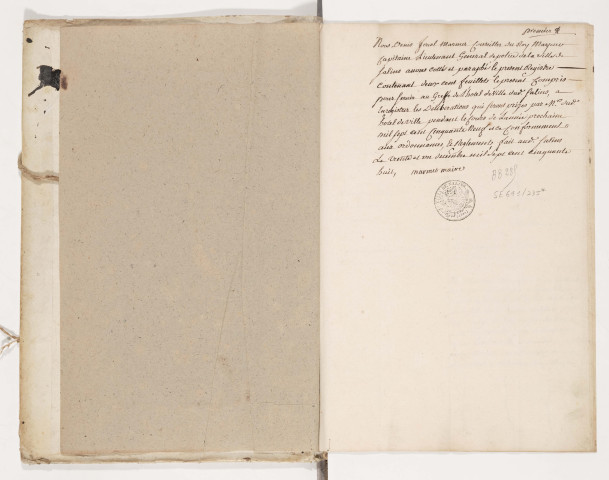 premier
Nous Denis Marmet Conseiller du Roy Mayeur
Capitaine Lieutenant General de police de la ville de
Salins avons cotté et paraphé le present Registre
contenant deux cent feuillets le present compris
pour servir au Greffe de l'hotel de Ville dud. Salins, a
Enregistrer les Deliberations qui seront prises par Mrs. dud.
hotel de ville pendant le cours de l'année prochaine
mil sept cent cinquante Neuf et ce conformement
aux ordonnances, et Reglements fait aud. Salins
Le trente et un decembre mil sept cent cinquante
huit, marmet maire
BB 228